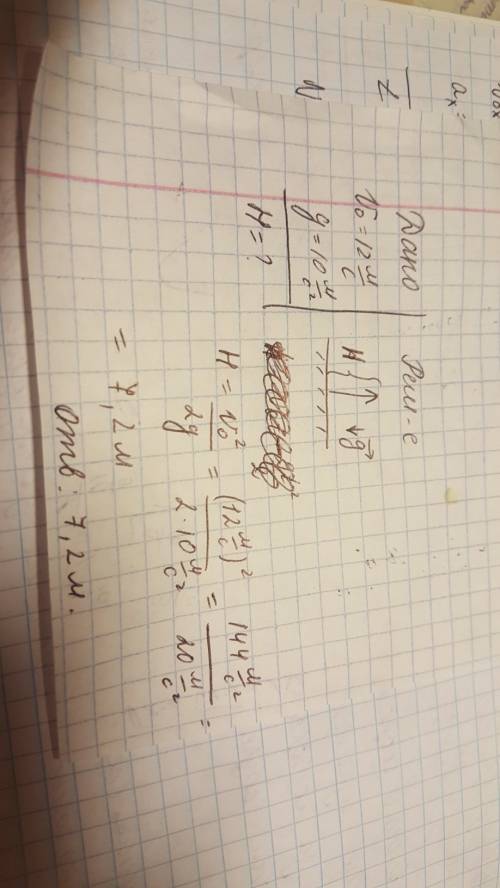 Дано
V₀ = 12 м/с
g = 10 м/с²
H = ?
Реш-е
H { ↑ ↓g⃗
H = v₀²/2g = (12 м/с)²/2·10 м/с² = 144 м/с²/20 м/с² =
= 7,2 м
отв: 7,2 м.